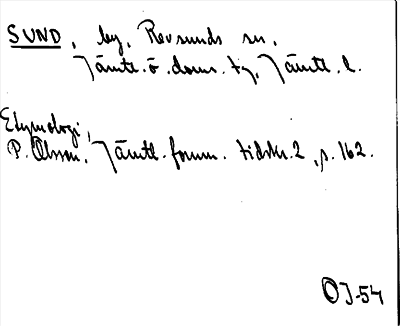 SUND, by, Revsunds sn,
Jämtl. ö. doms. tg, Jämtl. l.
Etymologi,
P. Olsson, Jämtl. fornm. tidskr. 2, s. 162.
OJ-54